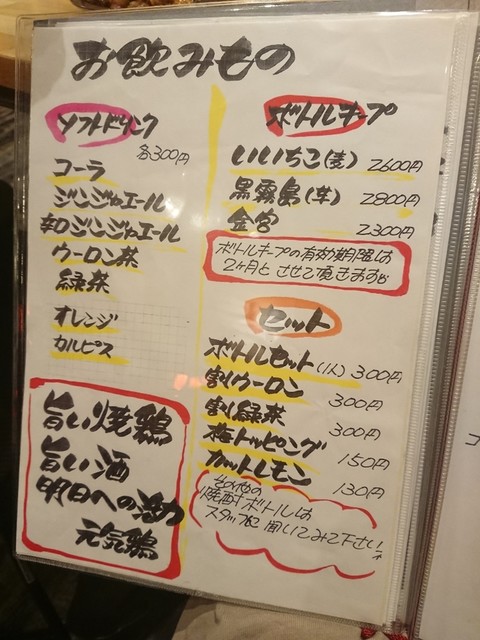 お飲みもの
ソフトドリンク
各300円
コーラ
ジンジャエール
辛口ジンジャエール
ウーロン茶
緑茶
オレンジ
カルピス
旨い焼鶏
旨い酒
明日への活力
元気鶏
ボトルキープ
いいちこ(麦) 2600円
黒霧島(芋) 2800円
金宮 2300円
ボトルキープの有効期限は
2ヶ月とさせて頂きます
セット
ボトルセット(1人) 300円
割りウーロン 300円
割り緑茶 300円
梅トッピング 150円
カットレモン 130円
その他の
焼酎ボトルは
スタッフに聞いてみて下さい